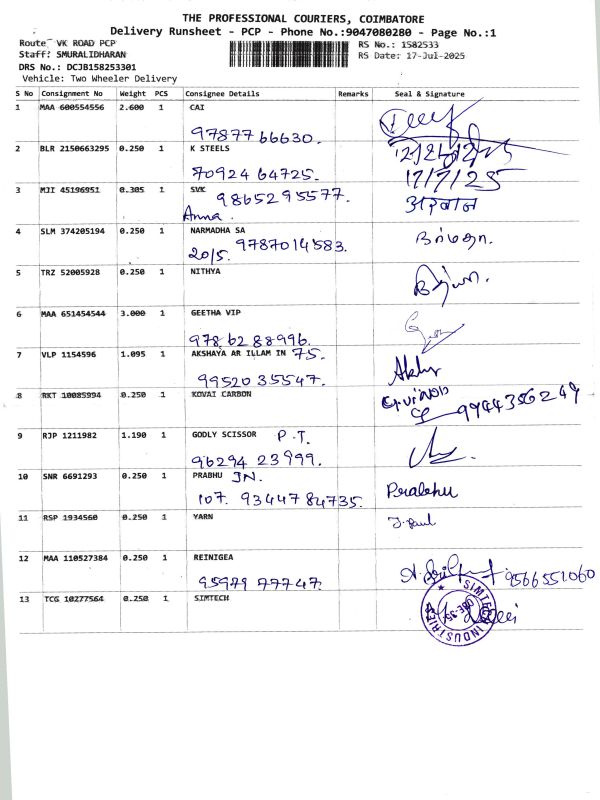 THE PROFESSIONAL COURIERS, COIMBATORE
Delivery Runsheet - PCP - Phone No.:9047080280 - Page No.:1
Route VK ROAD PCP
Staff: SMURALIDHARAN
DRS No.: DCJB158253301
Vehicle: Two Wheeler Delivery
RS No.: 1582533
RS Date: 17-Jul-2025
S No Consignment No Weight PCS Consignee Details Remarks Seal & Signature
1 MAA 600554556 2.600 1 CAI
9787766630.
2 BLR 2150663295 0.250 1 K STEELS
70924 64725. 17/7/25
3 MJI 45196951 0.305 1 SVK 98652 95577.
Anna.
4 SLM 374205194 0.250 1 NARMADHA SA
20/5. 9787014583. நர்மதா.
5 TRZ 52005928 0.250 1 NITHYA
6 MAA 651454544 3.000 1 GEETHA VIP
97862 88996.
7 VLP 1154596 1.095 1 AKSHAYA AR ILLAM IN 75.
99520 35547.
8 RKT 10085994 0.250 1 KOVAI CARBON
G.VINOD
9944356249
9 RJP 1211982 1.190 1 GODLY SCISSOR P.T.
96294 23999.
10 SNR 6691293 0.250 1 PRABHU IN.
107. 93447 84735. Prabhu
11 RSP 1934560 0.250 1 YARN J. Paul
12 MAA 110527384 0.250 1 REINIGEA
95979 77747. 9566551060
13 TCG 10277564 0.250 1 SIMTECH
SIMTECH INDUSTRIES
CBE-35